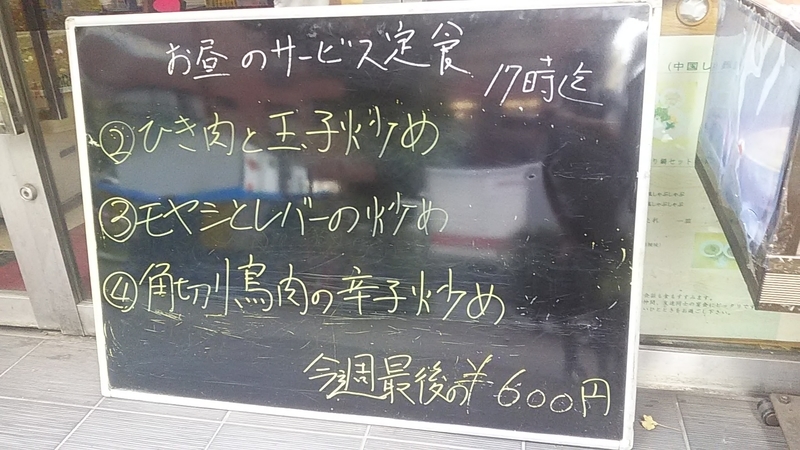 お昼のサービス定食
17時迄
②ひき肉と玉子炒め
③モヤシとレバーの炒め
④角切り鳥肉の辛子炒め
今週最後の¥600円
(中国し